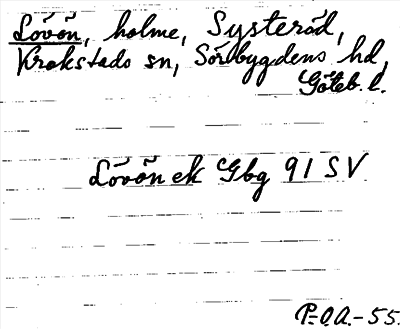 Lövön, holme, Systeröd,
Krokstads sn, Sörbygdens hd,
Göteb. l.
Lövön ek Gbg 91 SV
P-O.A.-55.